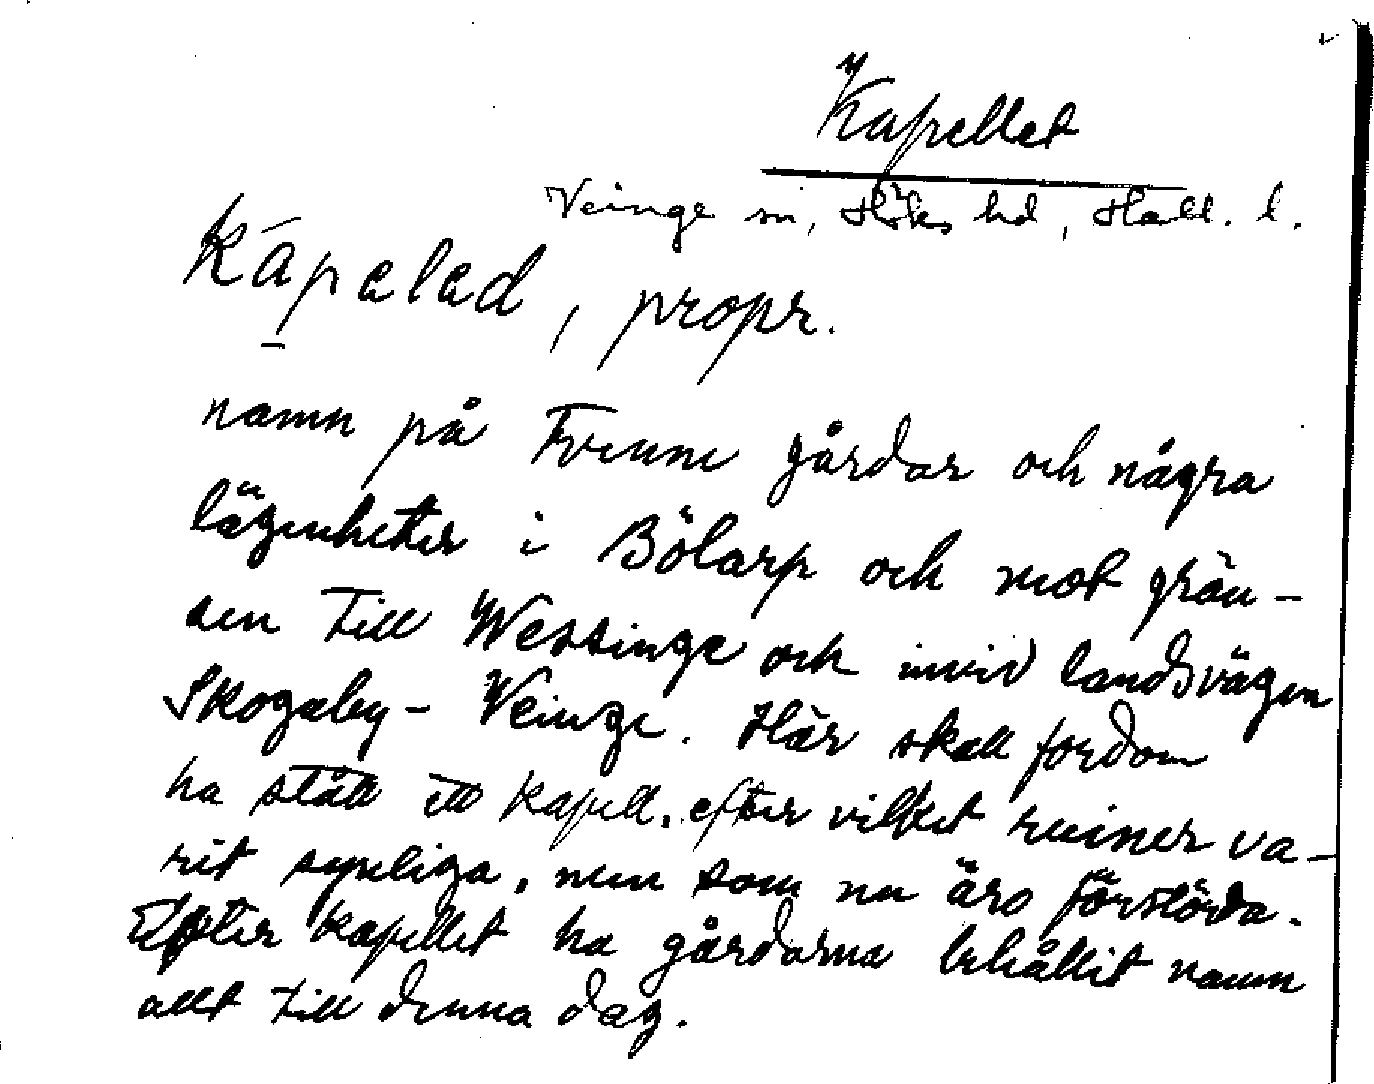 Kapellet
Veinge sn, Höks hd, Hall. l.
Kápeled, propr.
namn på Tvenne gårdar och några
lägenheter i Bölarp och mot grän-
sen till Wessinge och invid landsvägen
Skogaby - Veinge. Här skall fordom
ha stått ett kapell, efter vilket ruiner va-
rit synliga, men som nu äro förstörda.
Efter kapellet ha gårdarna behållit namn
allt till denna dag.